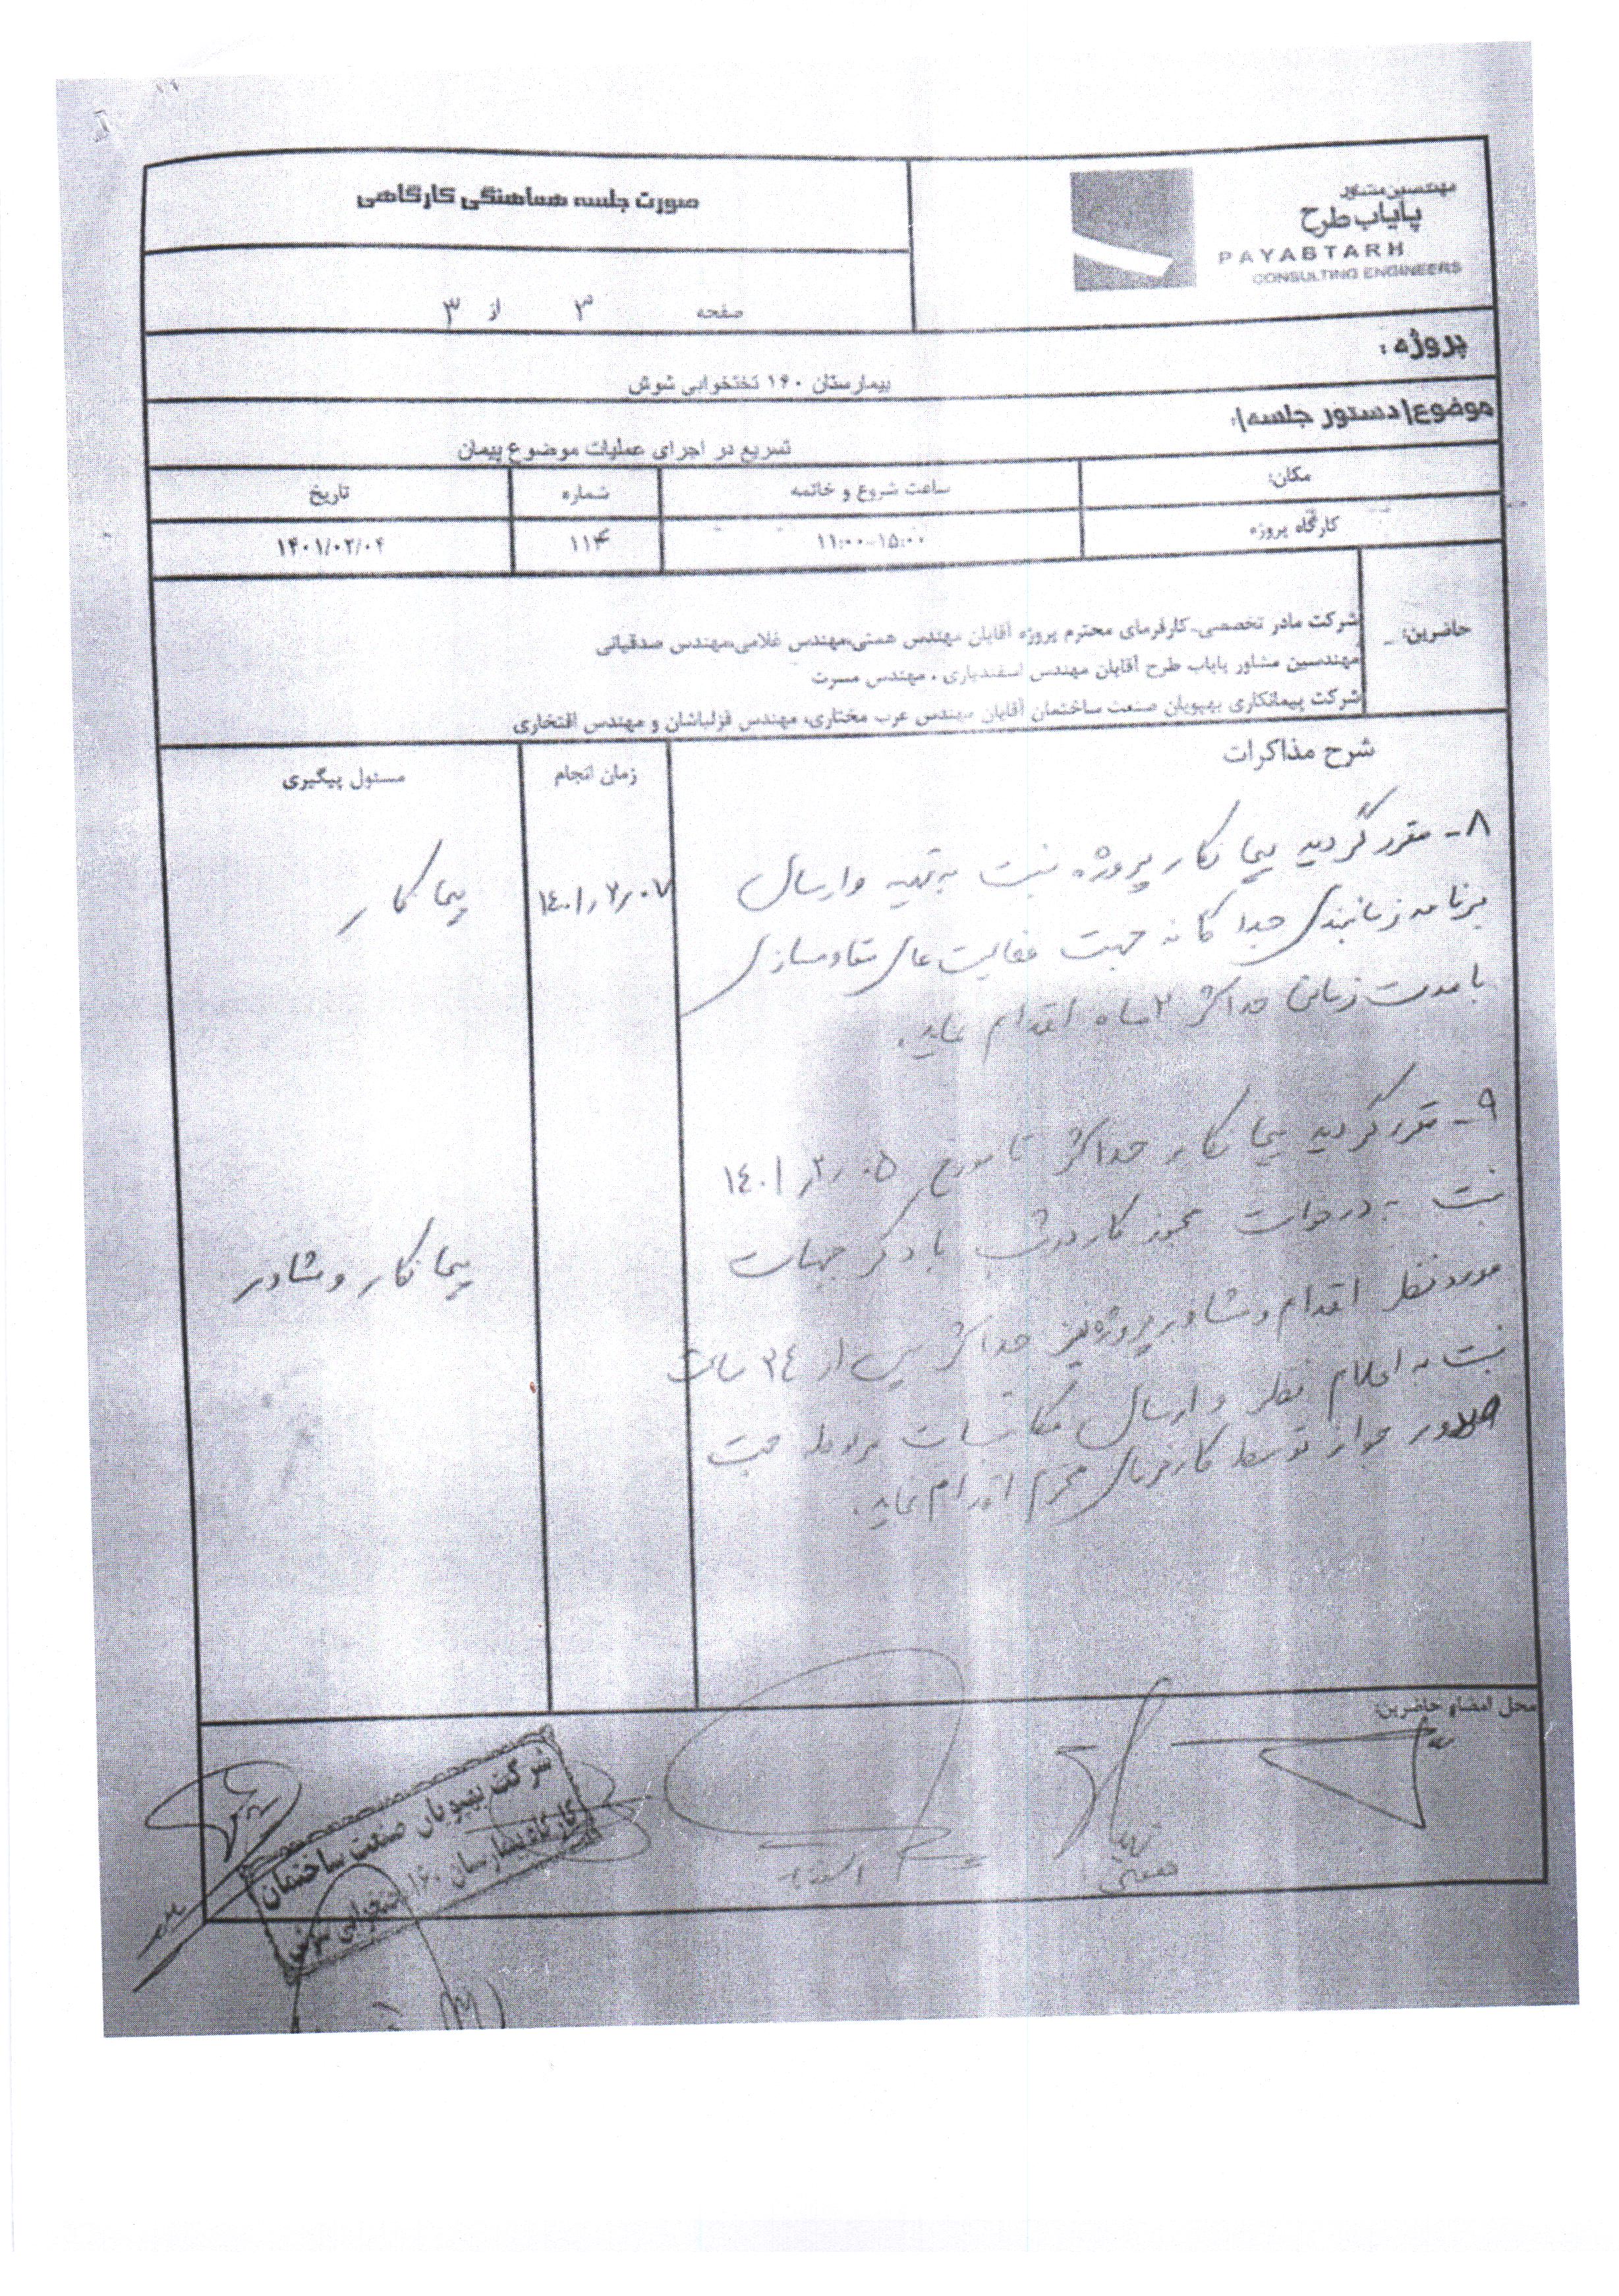 صورت جلسه هماهنگی کارگاهی
صفحه ۳ از ۳
مهندسین مشاور
پایاب طرح
PAYABTARH
CONSULTING ENGINEERS
پروژه :
بیمارستان ۱۶۰ تختخوابی شوش
موضوع(دستور جلسه):
تسریع در اجرای عملیات موضوع پیمان
مکان: ساعت شروع و خاتمه شماره تاریخ
کارگاه پروژه ۱۱:۰۰-۱۵:۰۰ ۱۱۴ ۱۴۰۱/۰۲/۰۴
حاضرین:
شرکت مادر تخصصی-کارفرمای محترم پروژه آقایان مهندس همتی،مهندس غلامی،مهندس صدقیانی
مهندسین مشاور پایاب طرح آقایان مهندس اسفندیاری ، مهندس مسرت
شرکت پیمانکاری بهپویان صنعت ساختمان آقایان مهندس عرب مختاری، مهندس قزلباشان و مهندس افتخاری
شرح مذاکرات زمان انجام مسئول پیگیری
۸- مقرر گردید پیمانکار پروژه نسبت به تهیه و ارسال
برنامه زمانبندی جداگانه جهت فعالیت های مقاومسازی
با مدت زمان حداکثر ۲ ماه اقدام نماید.
۱۴۰۱/۲/۰۷
پیمانکار
۹- مقرر گردید پیمانکار حداکثر تا مورخ ۱۴۰۱/۲/۰۵
نسبت به درخواست مجوز کار در شب با ذکر جبهات
مورد نظر اقدام و مشاور پروژه نیز حداکثر پس از ۲۴ ساعت
نسبت به اعلام نظر و ارسال مکاتبات مربوطه جهت
صدور جواز توسط کارفرمای محترم اقدام نماید.
پیمانکار و مشاور
محل امضاء حاضرین:
شرکت بهپویان صنعت ساختمان
کارگاه بیمارستان ۱۶۰ تختخوابی شوش